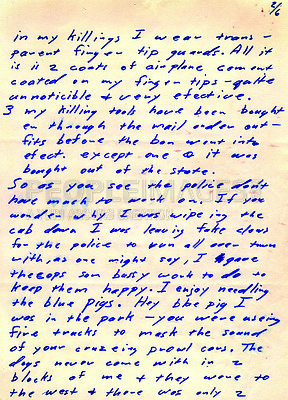 2/6
in my killings I wear trans-
parent finger tip guards. All it
is is 2 coats of airplane cement
coated on my finger tips - quite
unnoticible + very efective.
3 my killing tools have been bought
en through the mail order out-
fits before the ban went into
efect. except one & it was
bought out of the state.
So as you see the police don't
have much to work on. If you
wonder why I was wipeing the
cab down I was leaving fake clews
for the police to run all over town
with, as one might say, I gave
the cops som bussy work to do to
keep them happy. I enjoy needling
the blue pigs. Hey blue pig I
was in the park - you were useing
fire trucks to mask the sound
of your cruzeing prowl cars. The
dogs never came with in 2
blocks of me + they were to
the west + there was only 2